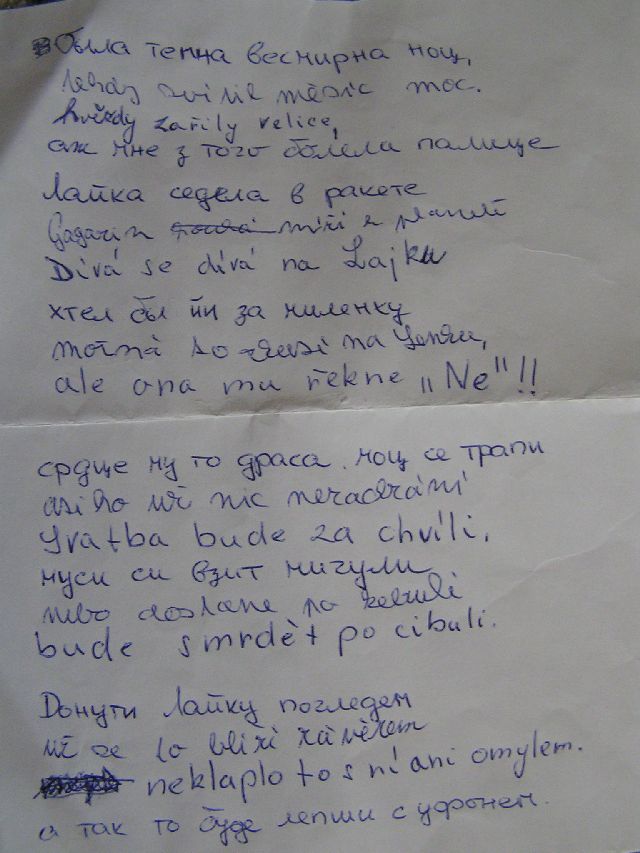 Была тепла весмирна нощ,
svítil měsíc moc.
hvězdy zařily velice,
аж мне з того болела палице
Лайка седела в ракете
Gagarin míří k planetě
Dívá se dívá na Lajku
хтел бы йи за миленку
možná ho na
ale ona mu řekne „Ne"!!
срдце му то драса, моц се трапи
asi ho už nic nezachrání
Svatba bude za chvíli,
муси си взит мичули
nebo dostane po kebuli
bude smrdět po cibuli.
Донути Лайку погледем
už se to blíží závěrem
neklaplo to s ní ani omylem.
а так то буде лепши с уфонем.